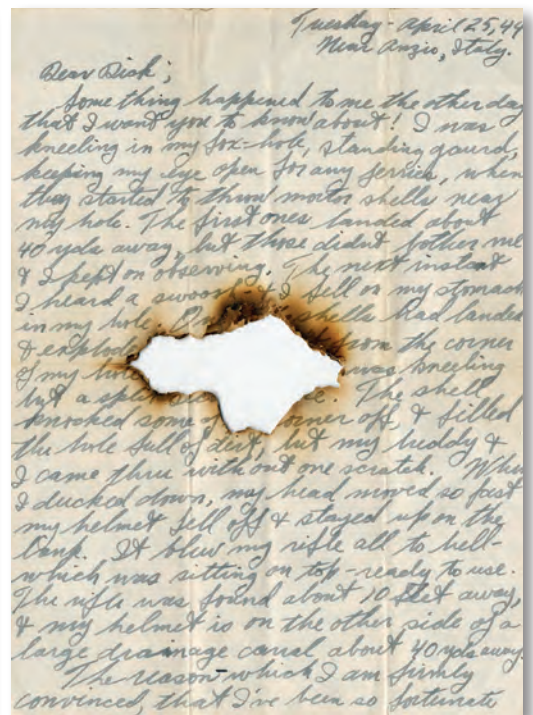 Tuesday - April 25, 44
Near Anzio, Italy.
Dear Dick;
Some thing happened to me the other day
that I want you to know about! I was
kneeling in my fox-hole, standing gaurd,
keeping my eye open for any Jerries, when
they started to throw mortor shells near
my hole. The first ones landed about
40 yds away, but those didnt bother me
& I kept on observing. The next instant
I heard a & I fell on my stomach
in my hole. shells had landed
& from the corner
of my hole was kneeling
but a split The shell
knocked some of corner off, & filled
the hole full of dirt, but my buddy &
I came thru with out one scratch. When
I ducked down, my head moved so fast
my helmet fell off & stayed up on the
bank. It blew my rifle all to hell-
which was sitting on top - ready to use.
The rifle was found about 10 feet away,
& my helmet is on the other side of a
large drainage canal about 40 yds away.
The reason which I am firmly
convinced, that I've been so fortunate